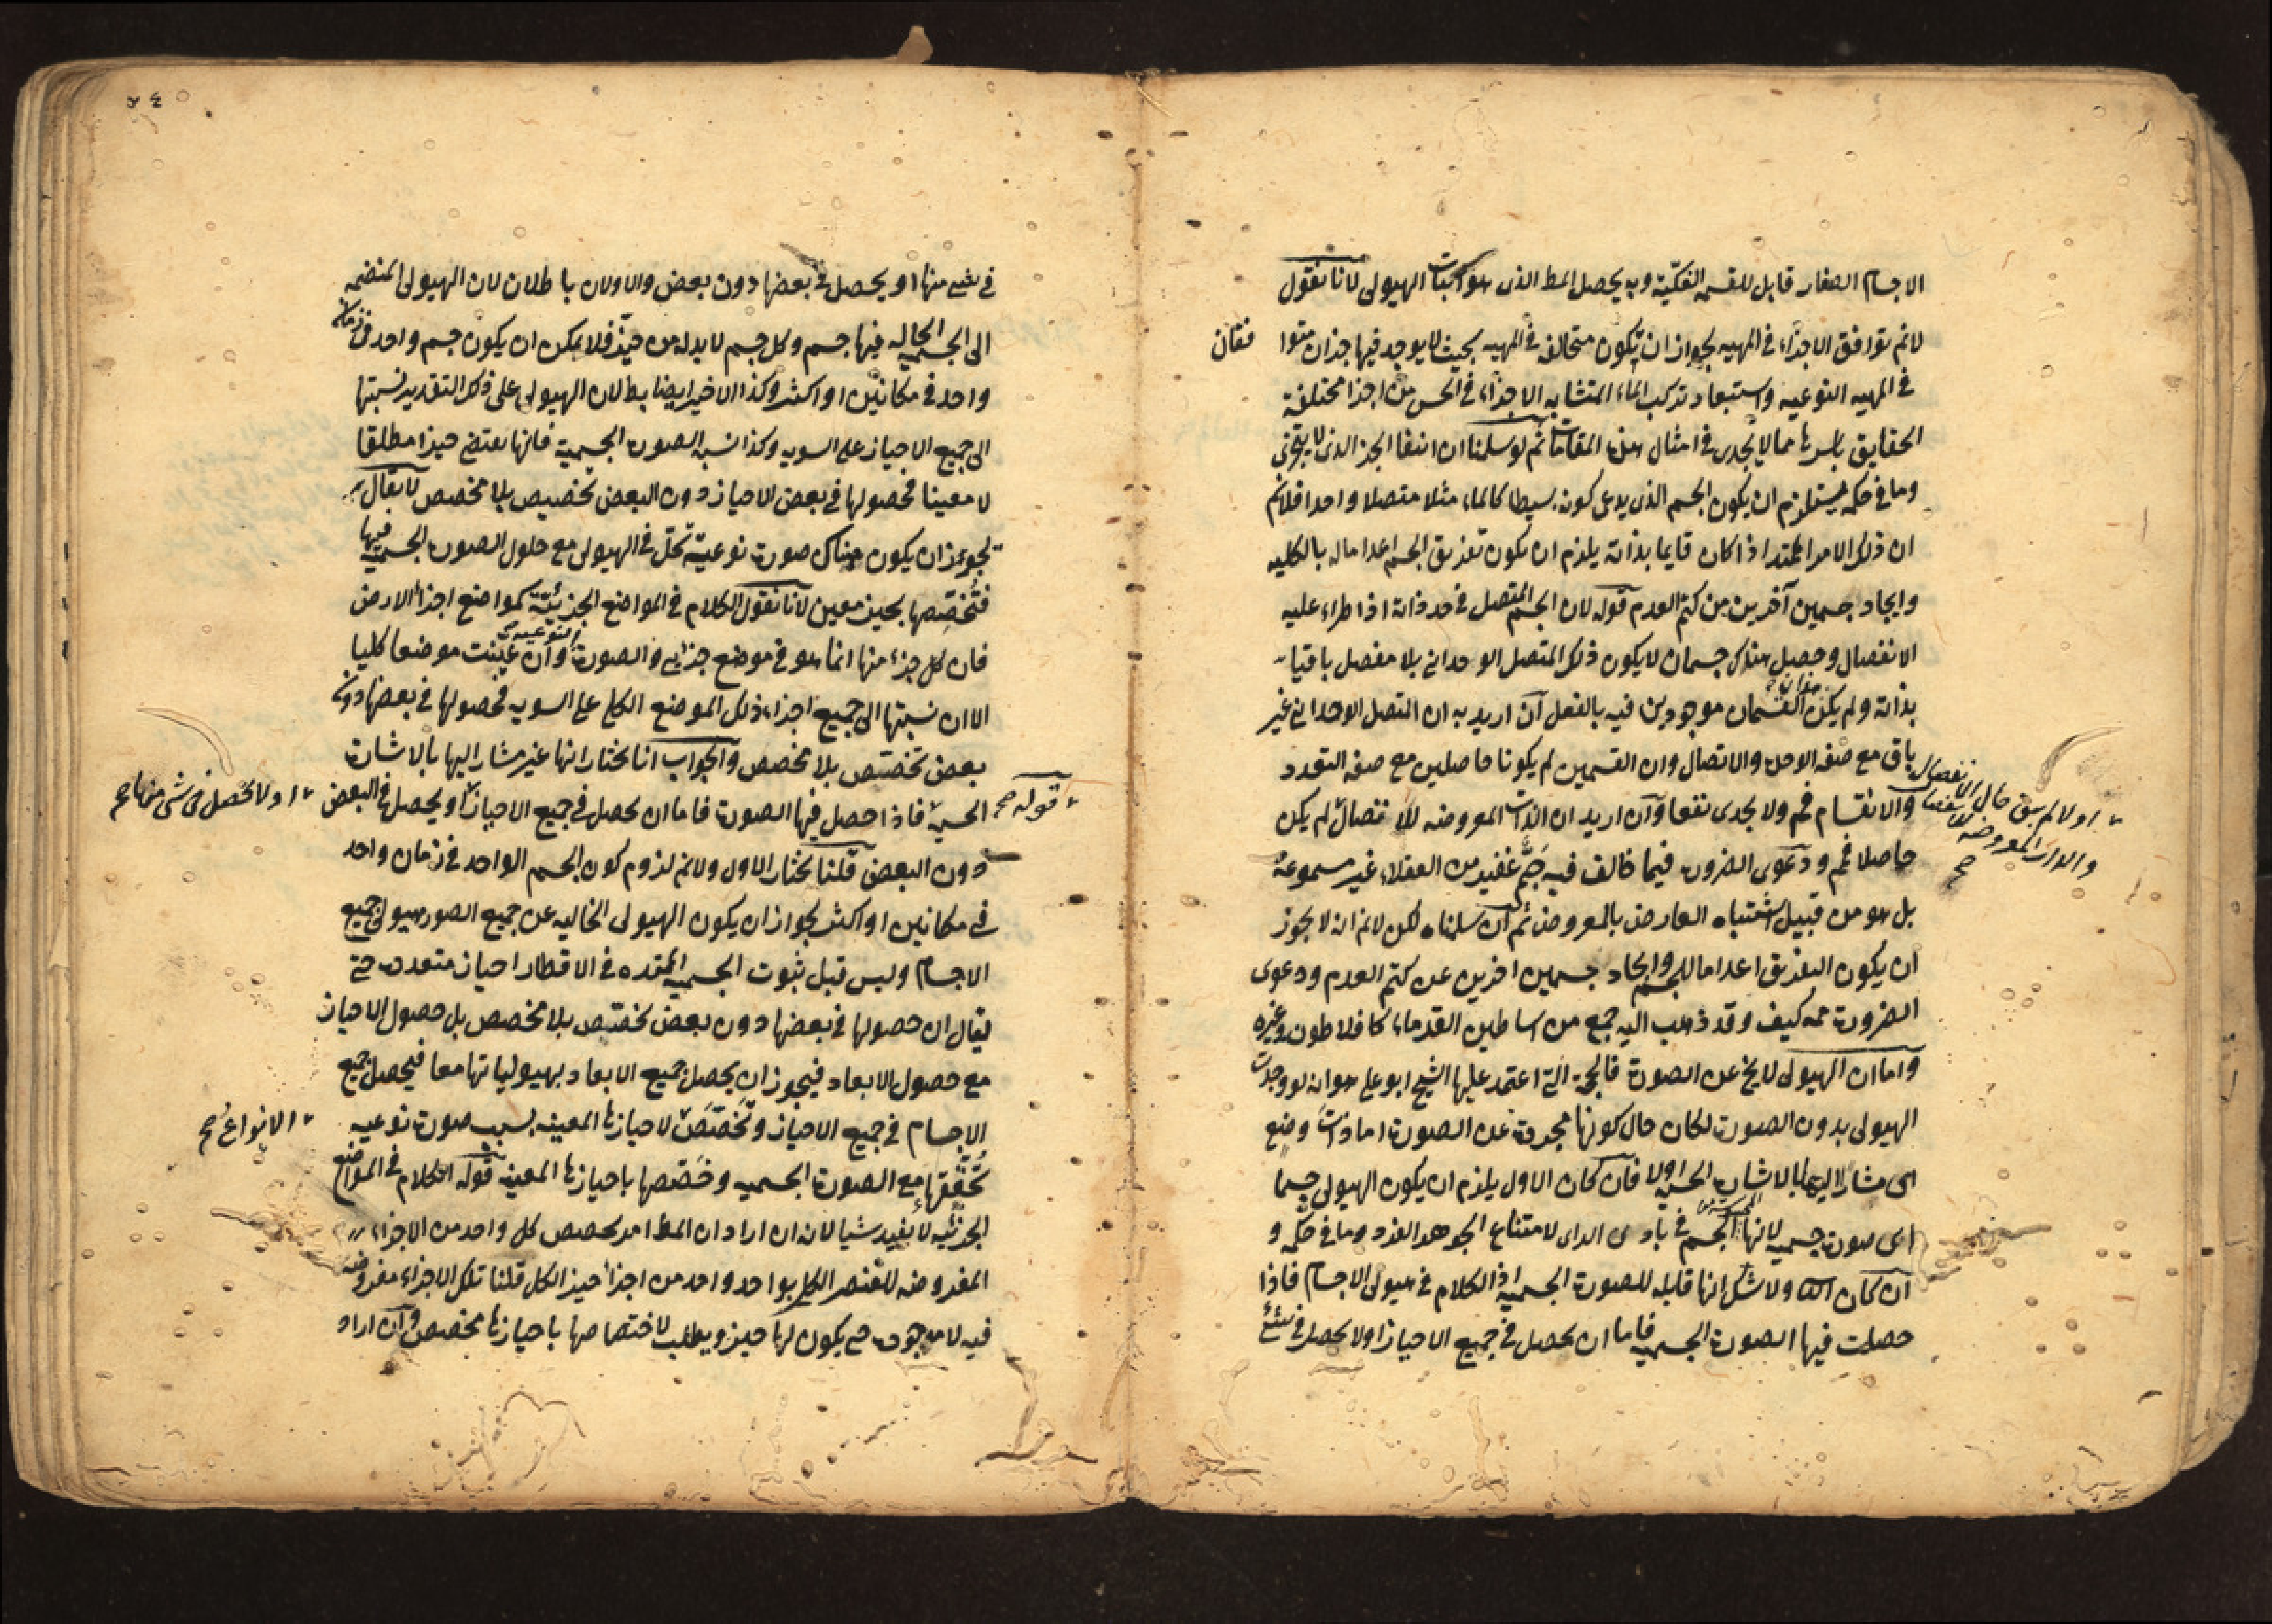 الاجسام الصغار قابل للقسمه الفكيّة وبه يحصل المط الذى هو اثبات الهيولى لانا نقول
لانم توافق الاجزاء فى المهيه لجواز ان يكون متخالفه فى المهيه بحيث لا يوجد فيها جزان متوا فقان
فى المهيه النوعيه واستبعاد تركب الماء المتشابه الاجزاء فى الحس من اجزا مختلفة
الحقايق باسرها مما لا يجدى فى امثال هذه المقامات ثم لو سلمنا ان انتفا الجز الذى لا يتجزى
وما فى حكمه يستلزم ان يكون الجسم الذى يدعى كونه بسيطا كالماء مثلا متصلا واحدا فلانم
ان ذلك الامر الممتد اذا كان قايما بذاته يلزم ان يكون تفريق الجسم اعداما له بالكليه
وايجاد جسمين آخرين من كتم العدم قوله لان الجسم المتصل فى حد ذاته اذا طراء عليه
الانفصال وحصل هناك جسمان لا يكون ذلك المتصل الوحدانى بلا مفصل باقيا
بذاته ولم يكن القسمان موجودين فيه بالفعل ان اريد به ان المتصل الوحدانى غير
باق مع صفه الوحدة والاتصال وان القسمين لم يكونا حاصلين مع صفه التعدد
والانقسام فم ولا يجدى نفعا وان اريد ان الذات المعروضه للانفصال لم يكن
اولا لم يبق حال الانفصال
والذات المعروضه
صح
حاصلا فم ودعوى الضرورة فيما خالف فيه جَمٌّ غفير من العقلاء غير مسموعة
بل هو من قبيل اشتباه العارض بالمعروض ثم ان سلمناه لكن لانم انه لا يجوز
ان يكون التفريق اعداما للجسم وايجاد جسمين اخرين عن كتم العدم ودعوى
الضرورة ممه كيف وقد ذهب اليه جمع من اساطين القدماء كافلاطون وغيره
واما ان الهيولى لا يخ عن الصورة فالحجة التى اعتمد عليها الشيخ ابو على هو انه لو وجدت
الهيولى بدون الصورة لكان حال كونها مجردة عن الصورة اما ذات وضع
اى مشارا اليها بالاشارة الحسية اولا فان كان الاول يلزم ان يكون الهيولى جسما
اى صورة جسميه لانها الجسم فى بادى الراى لامتناع الجوهر الفرد وما فى حكمه و
ان كان الثانى ولا شك انها قابله للصورة الجسميه اذ الكلام فى هيولى الاجسام فاذا
حصلت فيها الصورة الجسميه فاما ان يحصل فى جميع الاحياز اولا يحصل فى شئ
فى شئ منها او يحصل فى بعضها دون بعض والاولان باطلان لان الهيولى المنضمه
الى الجسميه الحاله فيها جسم وكل جسم لابد له من حيّز فلا يمكن ان يكون جسم واحد فى زمان
واحد فى مكانين او اكثر وكذا الاخير ايضا بط لان الهيولى على ذلك التقدير نسبتها
الى جميع الاحياز على السويه وكذا نسبه الصورة الجسمية فانها يقتضى حيزا مطلقا
لا معينا فحصولها فى بعض الاحياز دون البعض تخصيص بلا مخصص لا يقال
لجواز ان يكون هناك صورة نوعيّة تحلّ فى الهيولى مع حلول الصورة الجسمية فيها
فتُخصّصها بحيز معين لانا نقول الكلام فى المواضع الجزئيّة كمواضع اجزاء الارض
فان كل جزء منها انما هو فى موضع جزئى والصورة النوعيه وان عينت موضعا كليا
الا ان نسبتها الى جميع اجزاء ذلك الموضع الكلى على السويه فحصولها فى بعضها دون
بعض تخصّص بلا مخصص والجواب انا نختار انها غير مشار اليها بالاشارة
قوله صح
الحسية فاذا حصل فيها الصورة فاما ان يحصل فى جميع الاحياز او يحصل فى البعض
اولا تحصل فى شئ منها صح
دون البعض قلنا نختار الاول ولانم لزوم كون الجسم الواحد فى زمان واحد
فى مكانين او اكثر لجواز ان يكون الهيولى الخاليه عن جميع الصور هيولى جميع
الاجسام وليس قبل ثبوت الجسمية الممتده فى الاقطار احياز متعددة حتى
يقال ان حصولها فى بعضها دون بعض تخصّص بلا مخصص بل حصول الاحياز
مع حصول الابعاد فيجوز ان يحصل جميع الابعاد بهيولياتها معا فيحصل جميع
الاجسام فى جميع الاحياز وتَخصّصَ لاحيازها المعينه بسبب صورة نوعيه
الانواع صح
تُحقّقها مع الصورة الجسميه وخصّصها باحيازها المعينه قوله الكلام فى المواضع
الجزئيه لا يفيد شيا لانه ان اراد ان المط امر يخصص كل واحد من الاجزاء
المفروضه للعنصر الكلى بواحد واحد من اجزا حيز الكل قلنا تلك الاجزاء مفروضه
فيه لا موجودة حتى يكون لها حيز ويطلب لاختصاصها باحيازها مخصص وان اراد